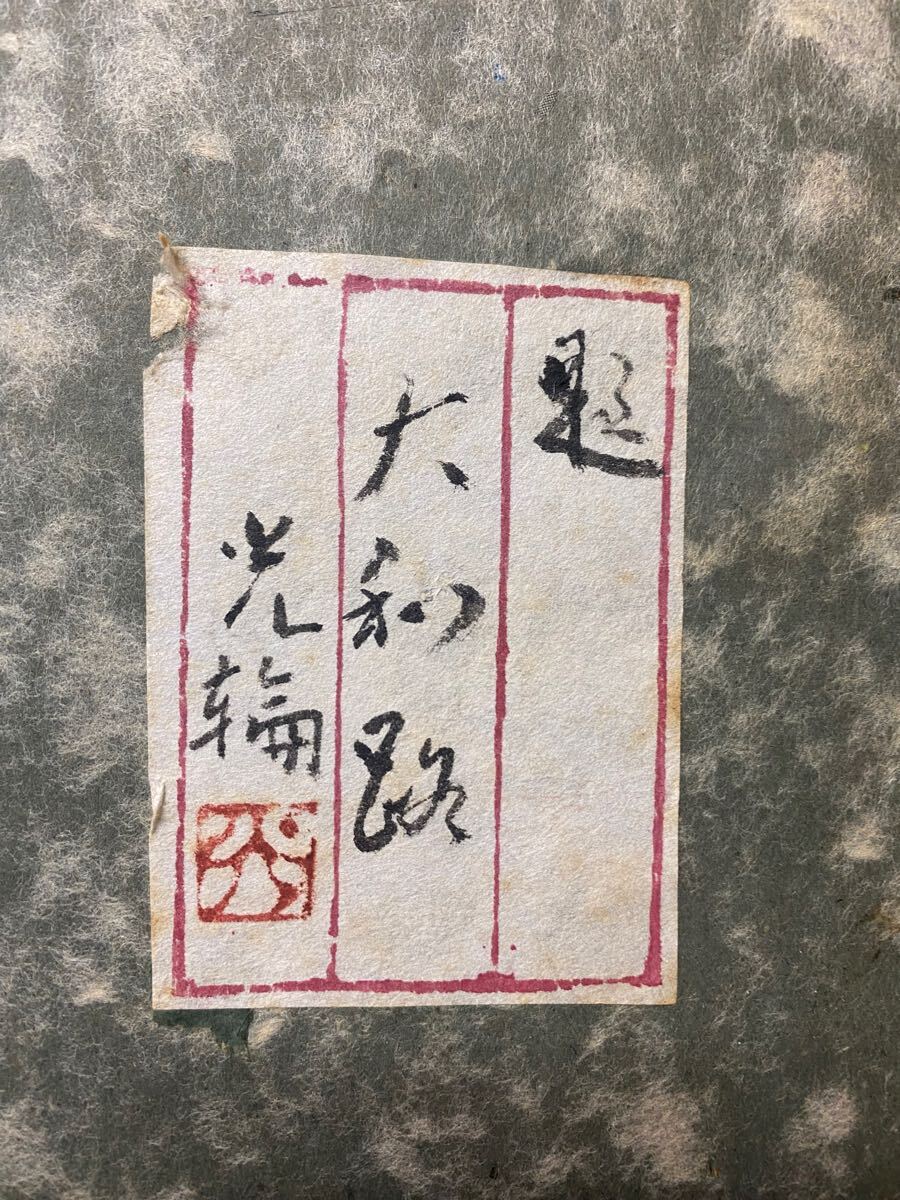 題
大和路
光輪